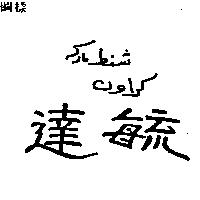 شنط ماركه
كراون
達毓